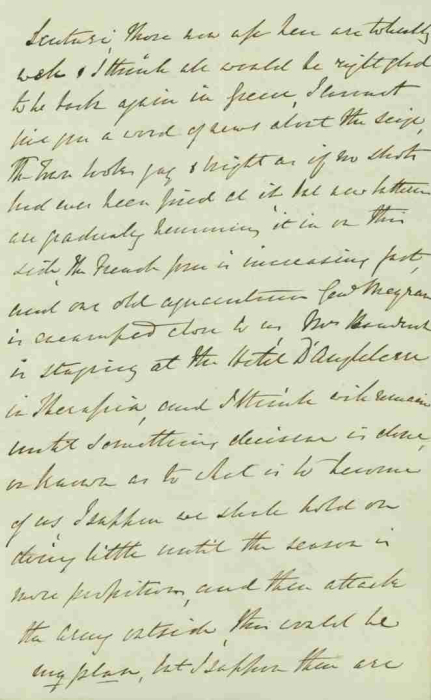 Scutari, those now up here are tolerably
well & I think all would be right glad
to be back again in Greece, I cannot
give you a word of news about the seige,
the Town looks gay & bright as if no shots
had ever been fired at it but new batteries
are gradually hemming it in on this
side, the French force is increasing fast,
and our old acquaintance Genl Meyran
is encamped close to us, Mrs
is staying at the Hotel D'Angleterre
in Therapia, and I think will remain
until something decisive is done,
or known as to what is to become
of us, I suppose we shall hold on
doing little until the season is
more propitious, and then attack
the army outside, this would be
my plan, but I suppose there are